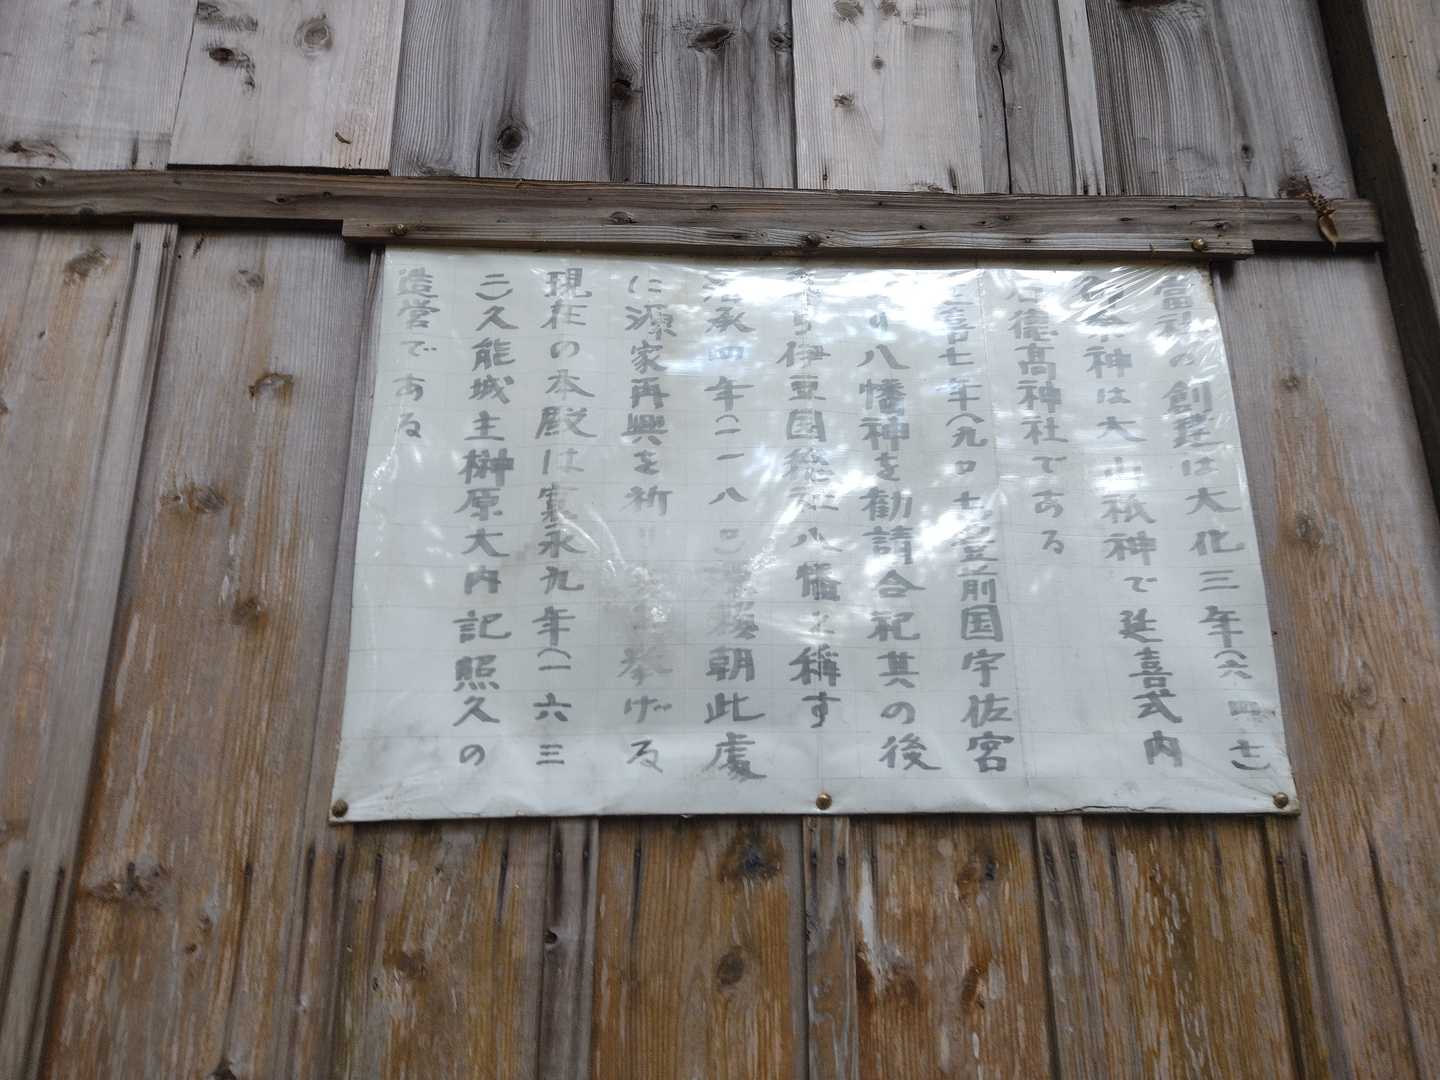 当社の創建は大化三年(六四七)
祭神は大山祇神で延喜式内
徳高神社である
延喜七年(九〇七)豊前国宇佐宮
より八幡神を勧請合祀其の後
専ら伊豆国総社八幡と称す
治承四年(一一八〇)源頼朝此處
に源家再興を祈り 挙げる
現在の本殿は寛永九年(一六三
二)久能城主榊原大内記照久の
造営である